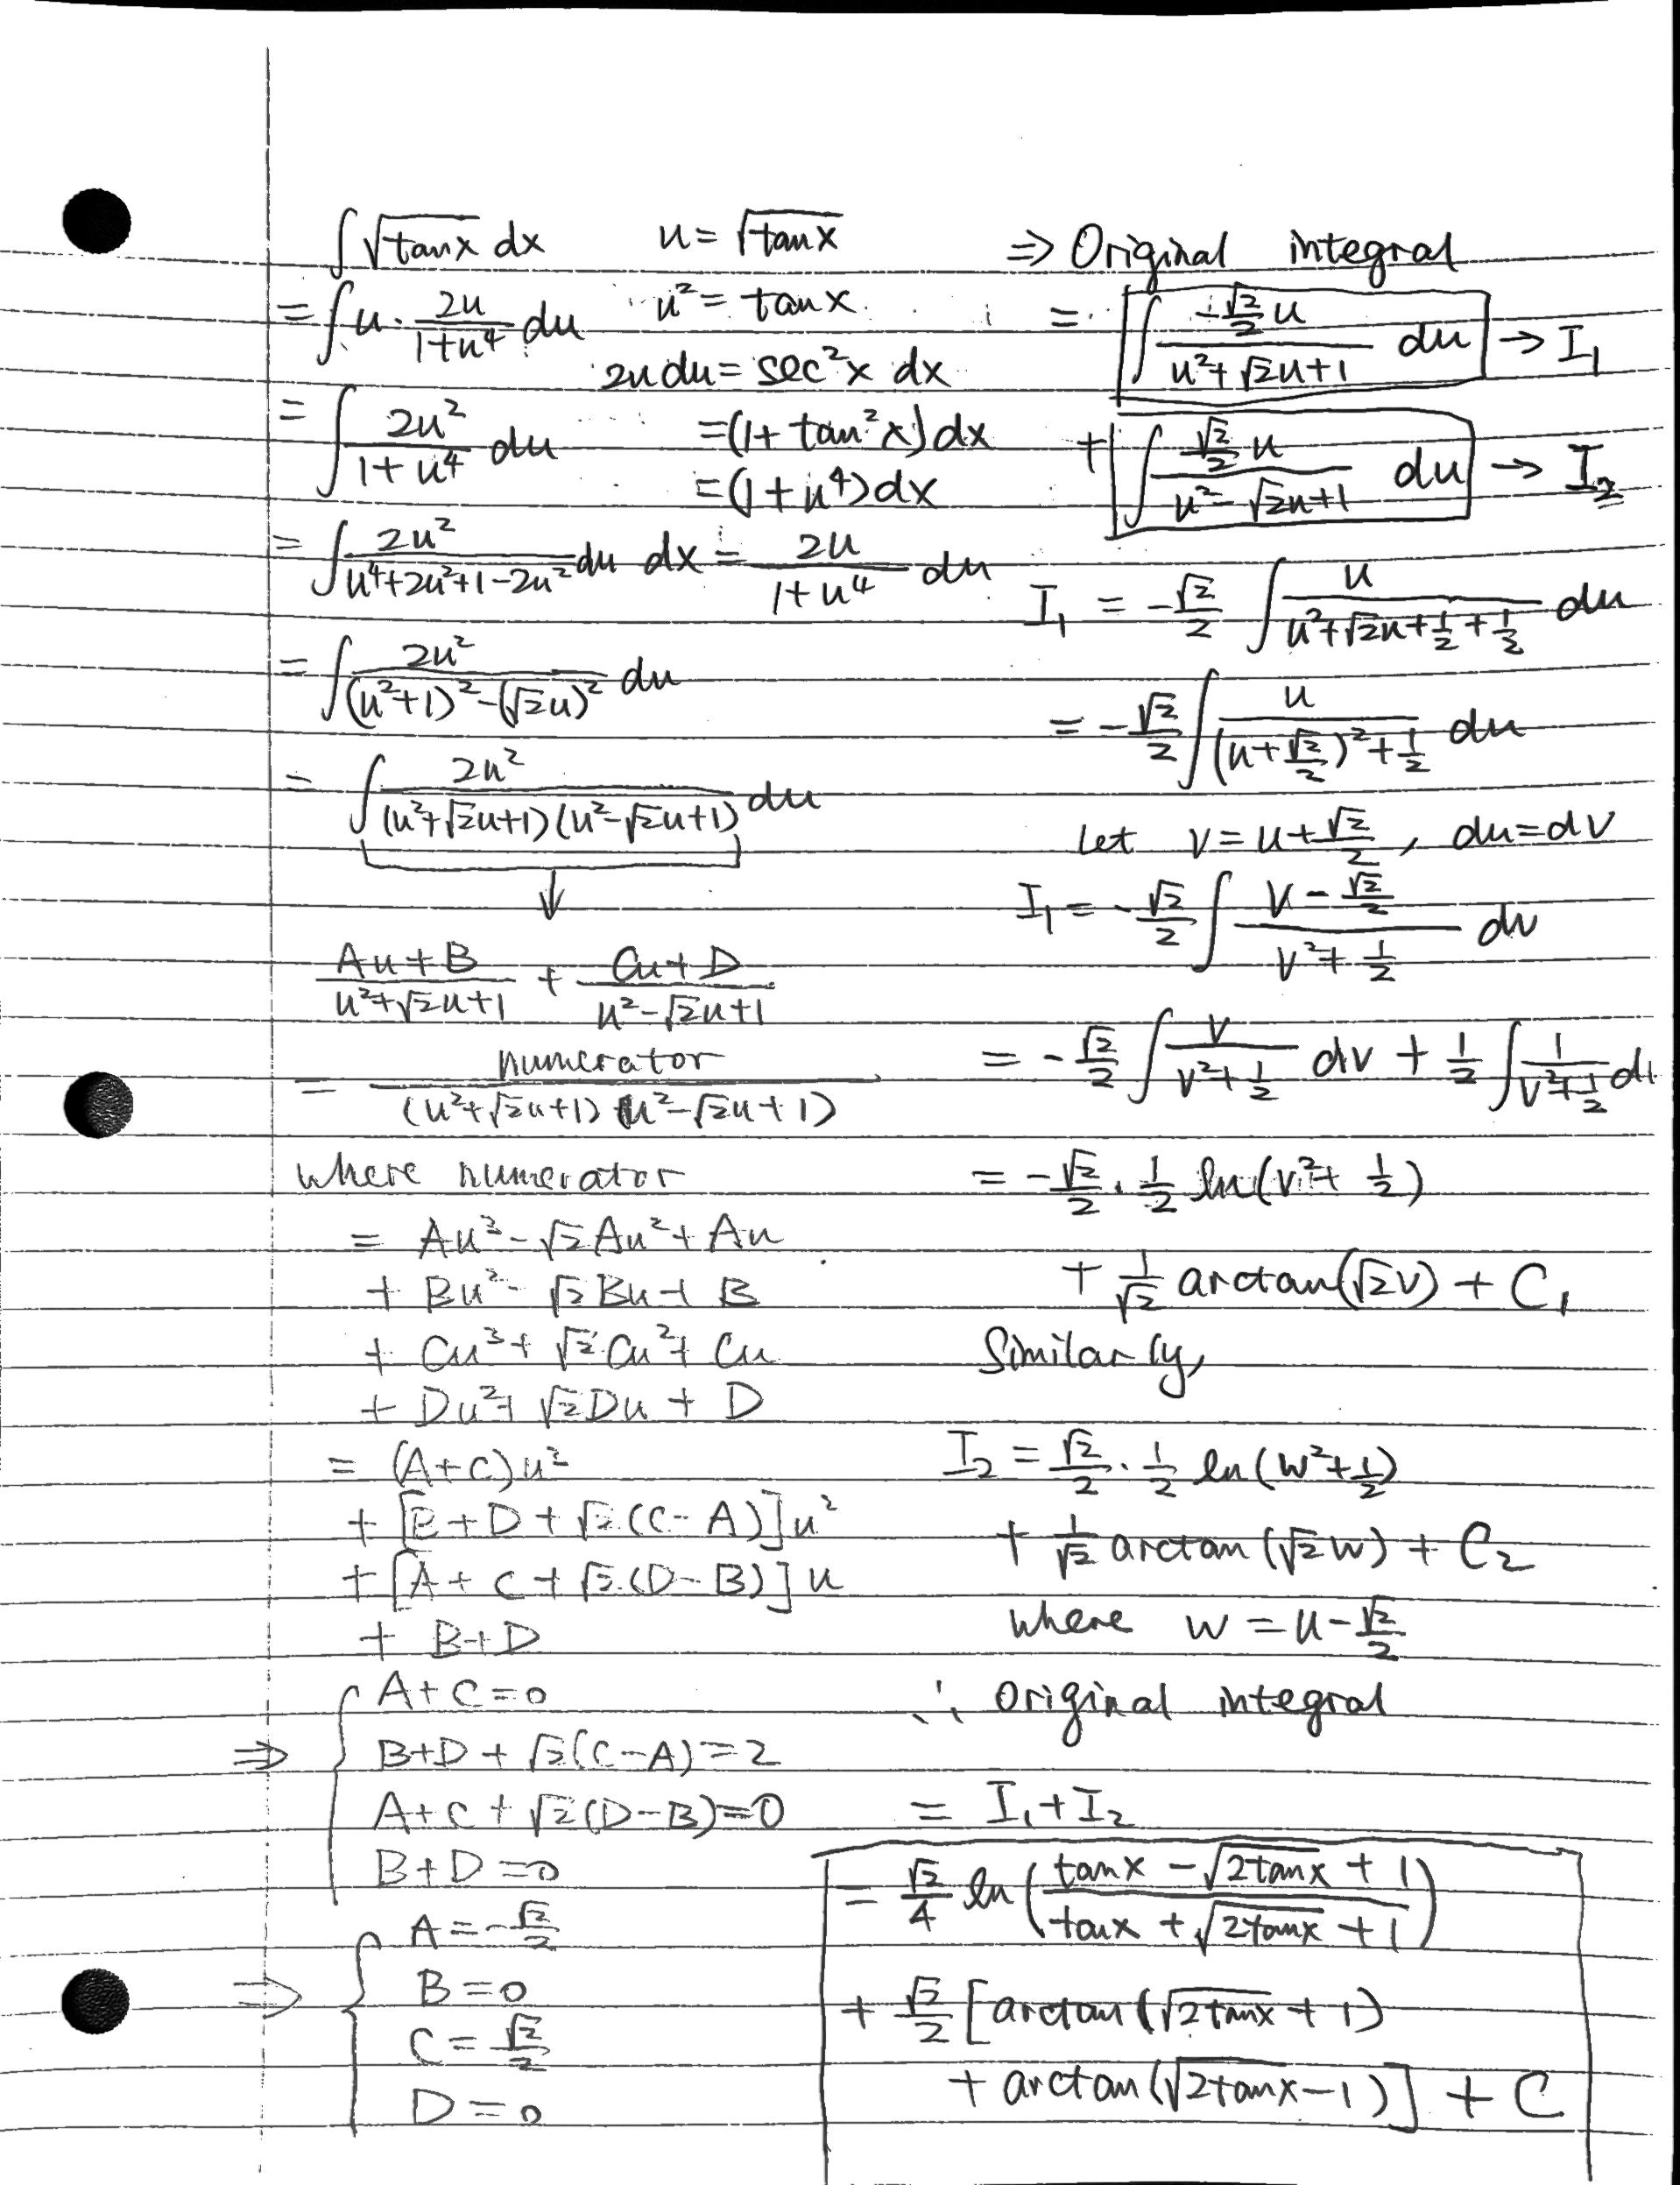 ∫√(tanx) dx    u = √(tanx)
= ∫u · 2u/(1+u⁴) du    u² = tanx
2u du = sec²x dx
= ∫ 2u²/(1+u⁴) du    = (1+tan²x)dx
= (1+u⁴)dx
= ∫ 2u²/(u⁴+2u²+1-2u²) du    dx = 2u/(1+u⁴) du
= ∫ 2u²/((u²+1)²-(√2u)²) du
= ∫ 2u²/((u²+√2u+1)(u²-√2u+1)) du
↓
(Au+B)/(u²+√2u+1) + (Cu+D)/(u²-√2u+1)
= numerator/((u²+√2u+1)(u²-√2u+1))
where numerator
= Au³-√2Au²+Au
+ Bu²-√2Bu+B
+ Cu³+√2Cu²+Cu
+ Du²+√2Du+D
= (A+C)u³
+ [B+D+√2(C-A)]u²
+ [A+C+√2(D-B)]u
+ B+D
⇒ { A+C=0
B+D+√2(C-A)=2
A+C+√2(D-B)=0
B+D=0
⇒ { A=-√2/2
B=0
C=√2/2
D=0
⇒ Original integral
= ∫ (-√2/2 u)/(u²+√2u+1) du → I₁
+ ∫ (√2/2 u)/(u²-√2u+1) du → I₂
I₁ = -√2/2 ∫ u/(u²+√2u+1/2+1/2) du
= -√2/2 ∫ u/((u+√2/2)²+1/2) du
Let v=u+√2/2, du=dv
I₁ = -√2/2 ∫ (v-√2/2)/(v²+1/2) dv
= -√2/2 ∫ v/(v²+1/2) dv + 1/2 ∫ 1/(v²+1/2) dv
= -√2/2 · 1/2 ln(v²+1/2)
+ 1/√2 arctan(√2v) + C₁
Similarly,
I₂ = √2/2 · 1/2 ln(w²+1/2)
+ 1/√2 arctan(√2w) + C₂
where w = u-√2/2
∴ original integral
= I₁+I₂
= √2/4 ln((tanx-√(2tanx)+1)/(tanx+√(2tanx)+1))
+ √2/2 [arctan(√(2tanx)+1)
+ arctan(√(2tanx)-1)] + C